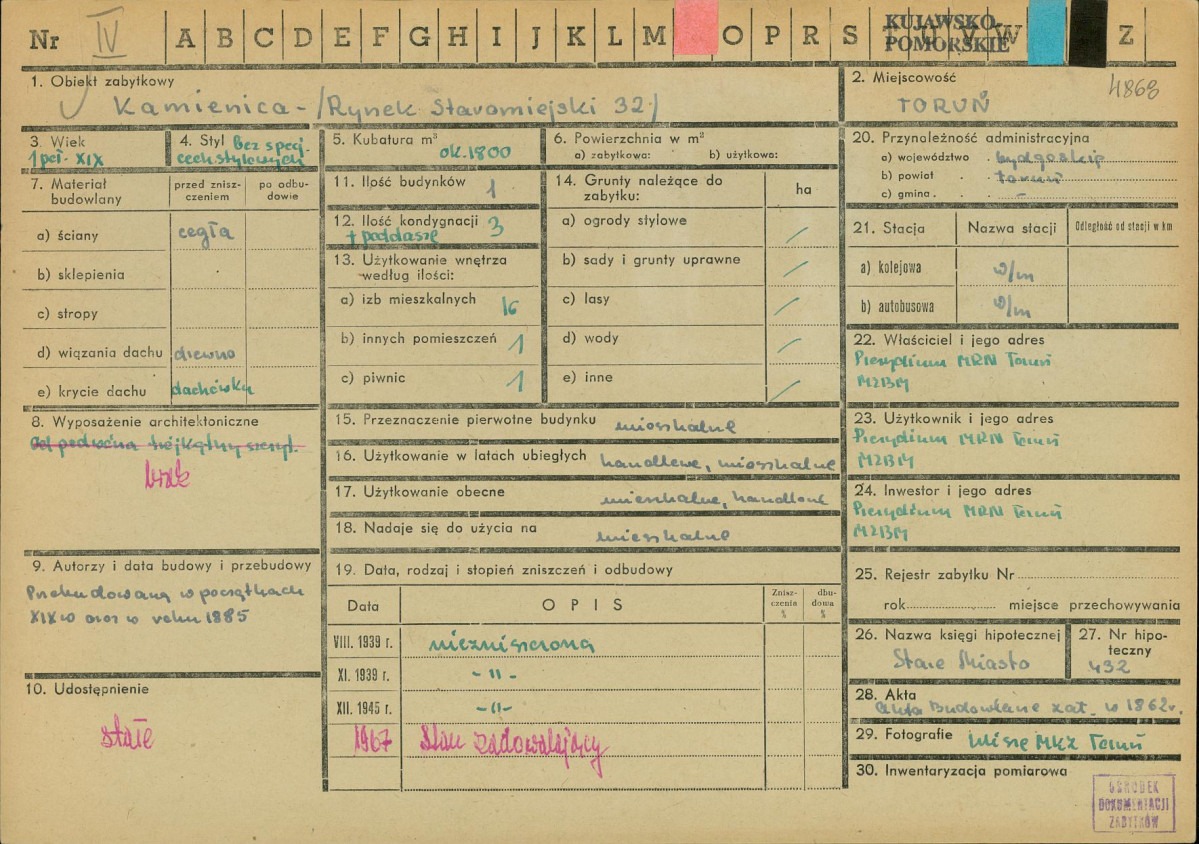 Nr IV A B C D E F G H I J K L M O P R S T U V W Z
KUJAWSKO-
POMORSKIE
1. Obiekt zabytkowy
Kamienica - /Rynek Staromiejski 32/
2. Miejscowość
4868
TORUŃ
3. Wiek
1 poł. XIX
4. Styl Bez specj.
cech stylowych
5. Kubatura m³
ok. 1800
6. Powierzchnia w m²
a) zabytkowa: b) użytkowa:
7. Materiał budowlany
przed zniszczeniem
po odbudowie
a) ściany cegła
b) sklepienia
c) stropy
d) wiązania dachu drewno
e) krycie dachu dachówka
8. Wyposażenie architektoniczne
trójkątny szczyt.
brak
9. Autorzy i data budowy i przebudowy
Przebudowana w początkach
XIX w oraz w roku 1885
10. Udostępnienie
stałe
11. Ilość budynków 1
12. Ilość kondygnacji 3
+ poddasze
13. Użytkowanie wnętrza
według ilości:
a) izb mieszkalnych 16
b) innych pomieszczeń 1
c) piwnic 1
14. Grunty należące do
zabytku:
ha
a) ogrody stylowe /
b) sady i grunty uprawne /
c) lasy /
d) wody /
e) inne /
15. Przeznaczenie pierwotne budynku mieszkalne
16. Użytkowanie w latach ubiegłych handlowe, mieszkalne
17. Użytkowanie obecne mieszkalne, handlowe
18. Nadaje się do użycia na mieszkalne
19. Data, rodzaj i stopień zniszczeń i odbudowy
Data
OPIS
Zniszczenie %
dbudowa %
VIII. 1939 r. niezniszczona
XI. 1939 r. - " -
XII. 1945 r. - " -
1967 Stan zadowalający
20. Przynależność administracyjna
a) województwo . bydgoskie
b) powiat . . toruń
c) gmina . . -
21. Stacja
Nazwa stacji
Odległość od stacji w km
a) kolejowa w/m
b) autobusowa w/m
22. Właściciel i jego adres
Prezydium MRN Toruń
MZBM
23. Użytkownik i jego adres
Prezydium MRN Toruń
MZBM
24. Inwestor i jego adres
Prezydium MRN Toruń
MZBM
25. Rejestr zabytku Nr
rok miejsce przechowywania
26. Nazwa księgi hipotecznej
Stare Miasto
27. Nr hipoteczny
432
28. Akta
Akta Budowlane zał. w 1862 r.
29. Fotografie MKZ Toruń
30. Inwentaryzacja pomiarowa
OŚRODEK
DOKUMENTACJI
ZABYTKÓW